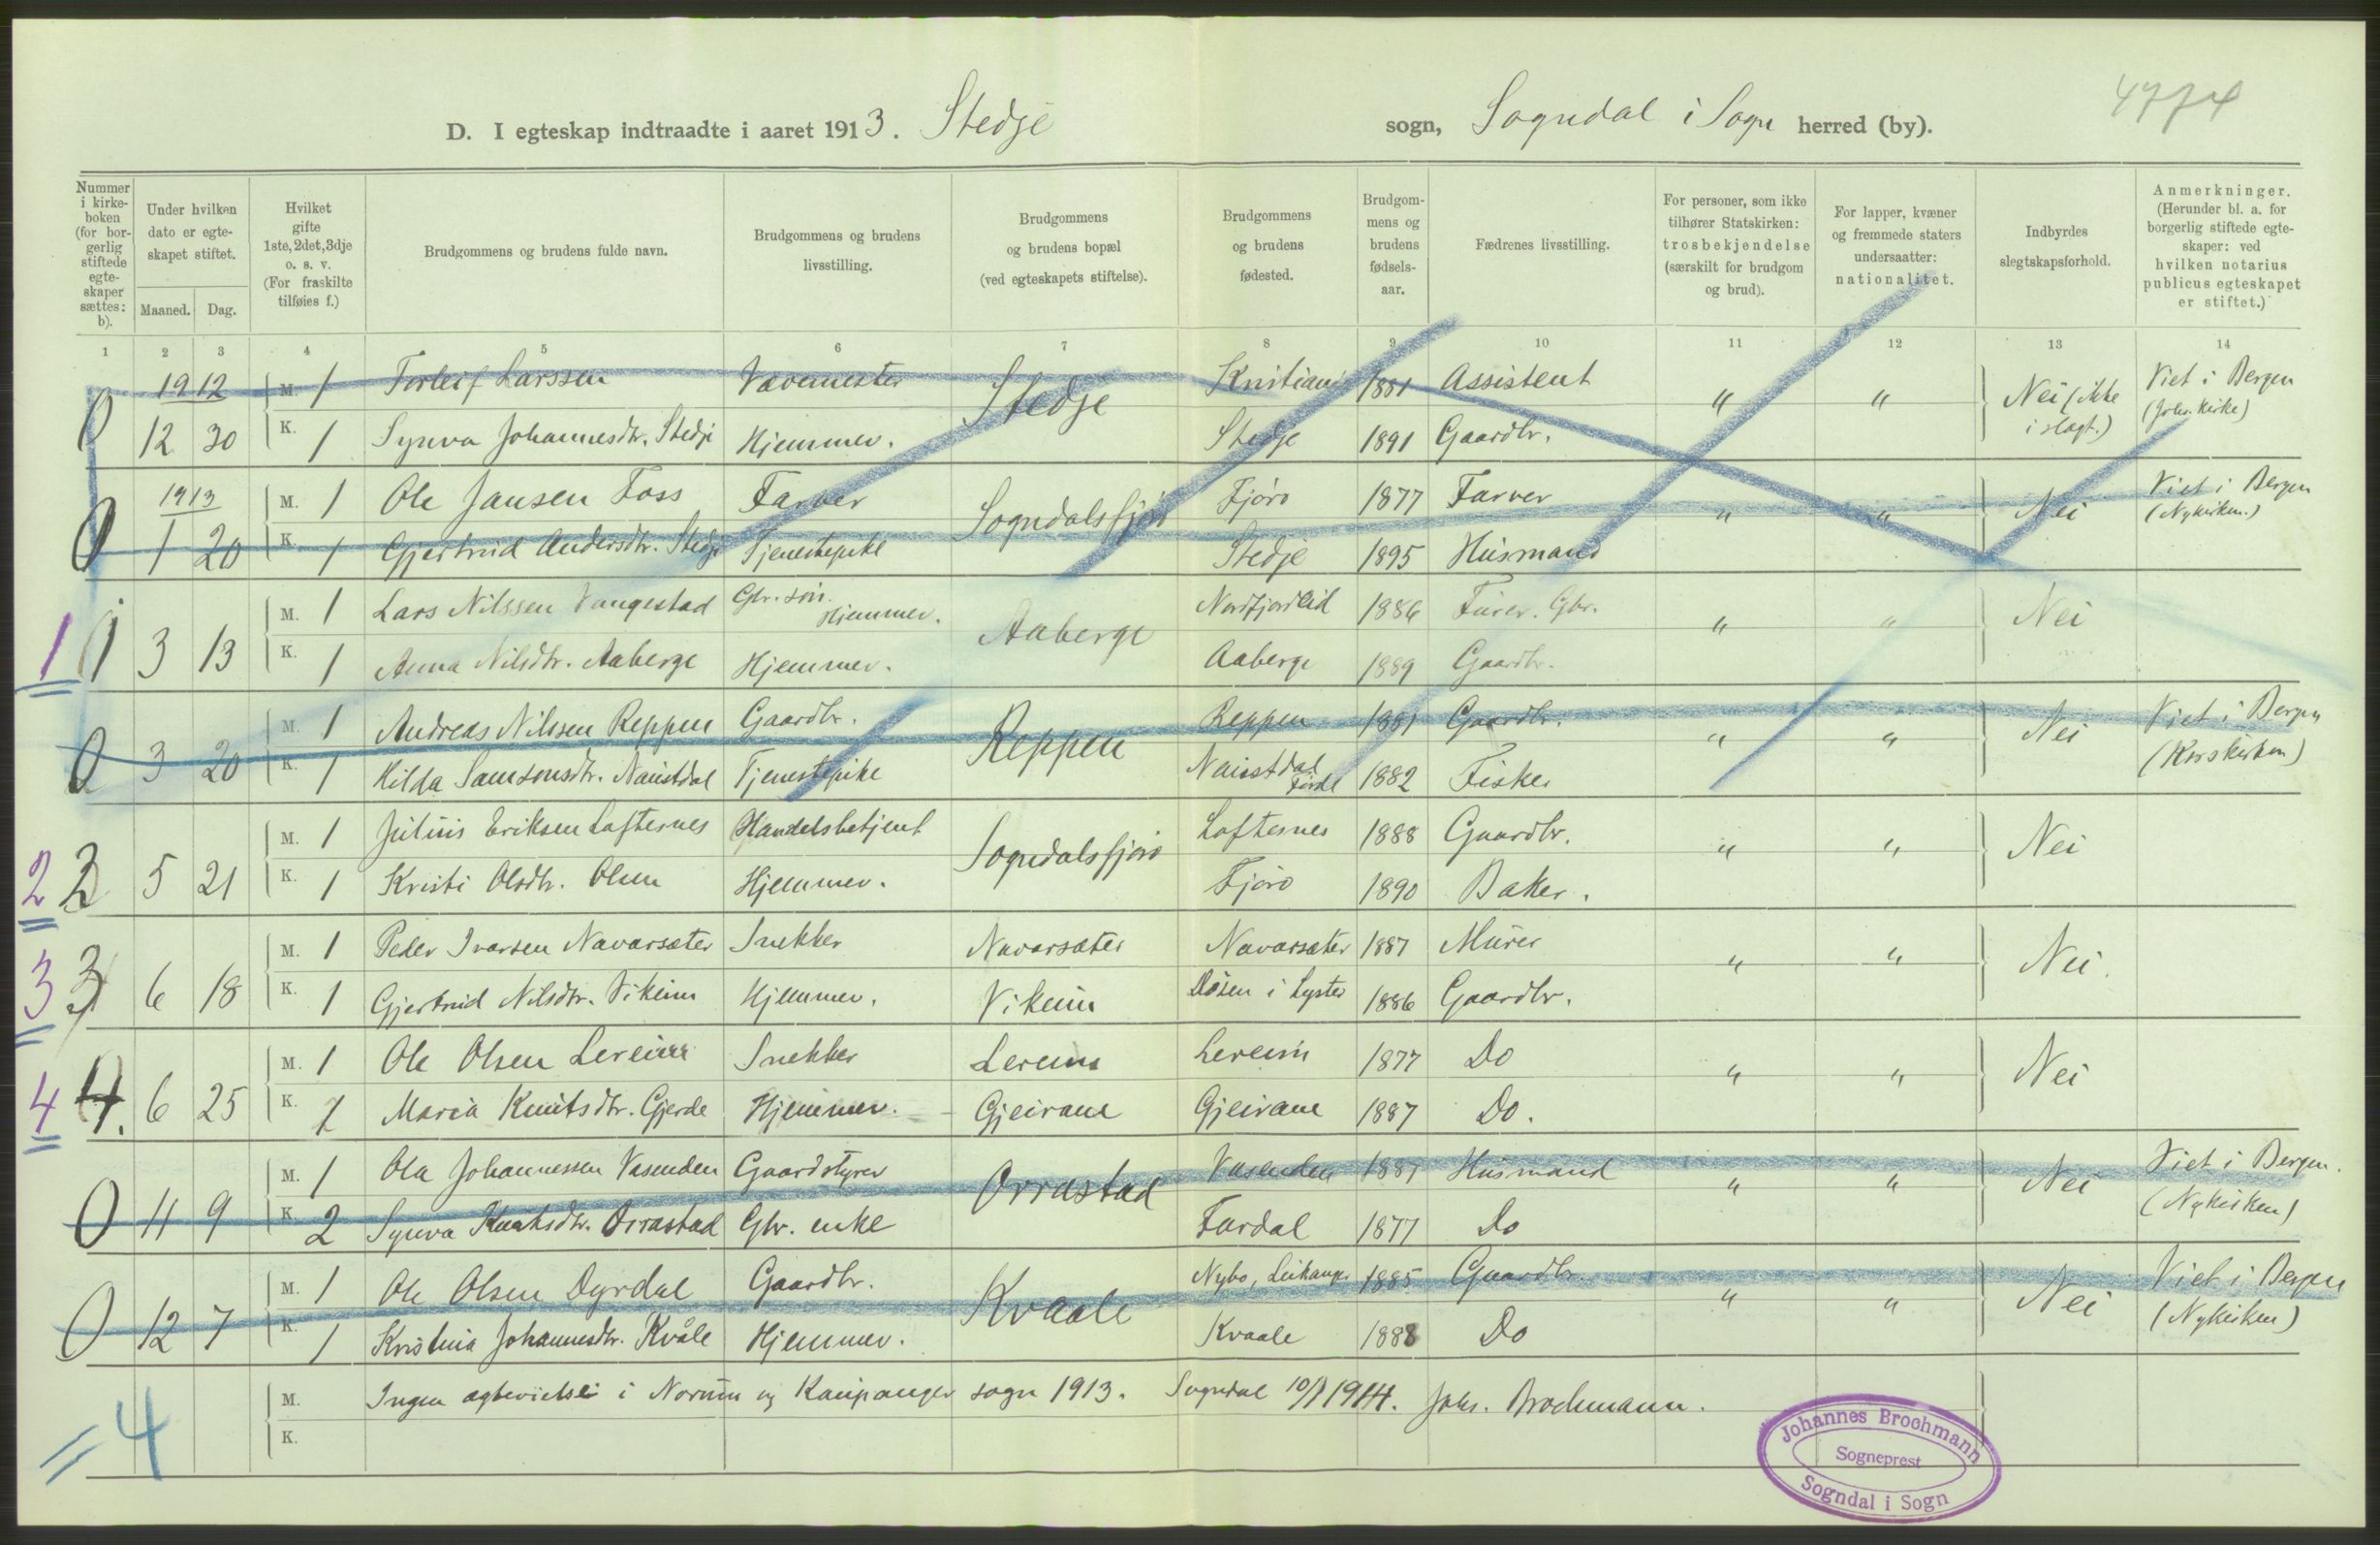 4774
D. I egteskap indtraadte i aaret 1913. Stedje sogn, Sogndal i Sogn herred (by).
Nummer i kirke-boken (for bor-gerlig stiftede egte-skaper sættes: b).
Under hvilken dato er egte-skapet stiftet.
Maaned. Dag.
Hvilket gifte 1ste, 2det, 3dje o. s. v. (For fraskilte tilføies f.)
Brudgommens og brudens fulde navn.
Brudgommens og brudens livsstilling.
Brudgommens og brudens bopæl (ved egteskapets stiftelse).
Brudgommens og brudens fødested.
Brudgom-mens og brudens fødsels-aar.
Fædrenes livsstilling.
For personer, som ikke tilhører Statskirken: trosbekjendelse (særskilt for brudgom og brud).
For lapper, kvæner og fremmede staters undersaatter: nationalitet.
Indbyrdes slegtskapsforhold.
Anmerkninger. (Herunder bl. a. for borgerlig stiftede egte-skaper: ved hvilken notarius publicus egteskapet er stiftet.)
1 2 3 4 5 6 7 8 9 10 11 12 13 14
1912 M. 1 Torleif Larssen Stedje 1881 Assistent " " Nei (ikke i slægt.) Viet i Bergen (Johs. kirke)
0 12 30 K. 1 Synva Johannesdtr. Stedje Hjemmev. Stedje 1891 Gaardbr.
1913 M. 1 Ole Jansen Foss Farver Sogndalsfjøro Fjøro 1877 Farver " " Nei Viet i Bergen (Nykirken.)
0 1 20 K. 1 Gjertrud Andersdtr. Stedje Tjenestepike Stedje 1895 Husmand
M. 1 Lars Nilssen Vangestad Gbr. søn. Hjemmev. Aaberge Nordfjordeid 1886 Gbr. " " Nei
1 3 13 K. 1 Anna Nilsdtr. Aaberge Hjemmev. Aaberge 1889 Gaardbr.
M. 1 Andreas Nilssen Reppen Gaardbr. Reppen Reppen 1881 Gaardbr. " " Nei Viet i Bergen (Korskirken)
0 3 20 K. 1 Hilda Samsonsdtr. Naustdal Tjenestepike Naustdal Førde 1882 Fisker
M. 1 Julius Eriksen Loftesnes Handelsbetjent Sogndalsfjøro Loftesnes 1888 Gaardbr. " " Nei
2 2 5 21 K. 1 Kristi Olsdtr. Olsen Hjemmev. Fjøro 1890 Baker.
M. 1 Peder Ivarsen Navarsæter Snekker Navarsæter Navarsæter 1887 Murer " " Nei.
3 3 6 18 K. 1 Gjertrud Nilsdtr. Vikum Hjemmev. Vikum Døsen i Lyster 1886 Gaardbr.
M. 1 Ole Olsen Lereim Snekker Lereim Lereim 1877 Do " " Nei
4 4. 6 25 K. 1 Maria Knutsdtr. Gjerde Hjemmev. Gjeirane Gjeirane 1887 Do.
M. 1 Ola Johannessen Vasenden Gaardstyrer Orrastad Vasenden 1881 Husmand " " Nei Viet i Bergen. (Nykirken)
0 11 9 K. 2 Synva Knutsdtr. Orrastad Gbr. enke Fardal 1877 Do
M. 1 Ole Olsen Dyrdal Gaardbr. Kvaale Nybø, Leikanger 1885 Gaardbr. " " Nei Viet i Bergen (Nykirken)
0 12 7 K. 1 Kristina Johannesdtr. Kvåle Hjemmev. Kvaale 1888 Do
M. Ingen egtevielse i Norum og Kaupanger sogn 1913. Sogndal 10/1 1914. Johs. Brochmann.
K.
= 4
Johannes Brochmann
Sogneprest
Sogndal i Sogn